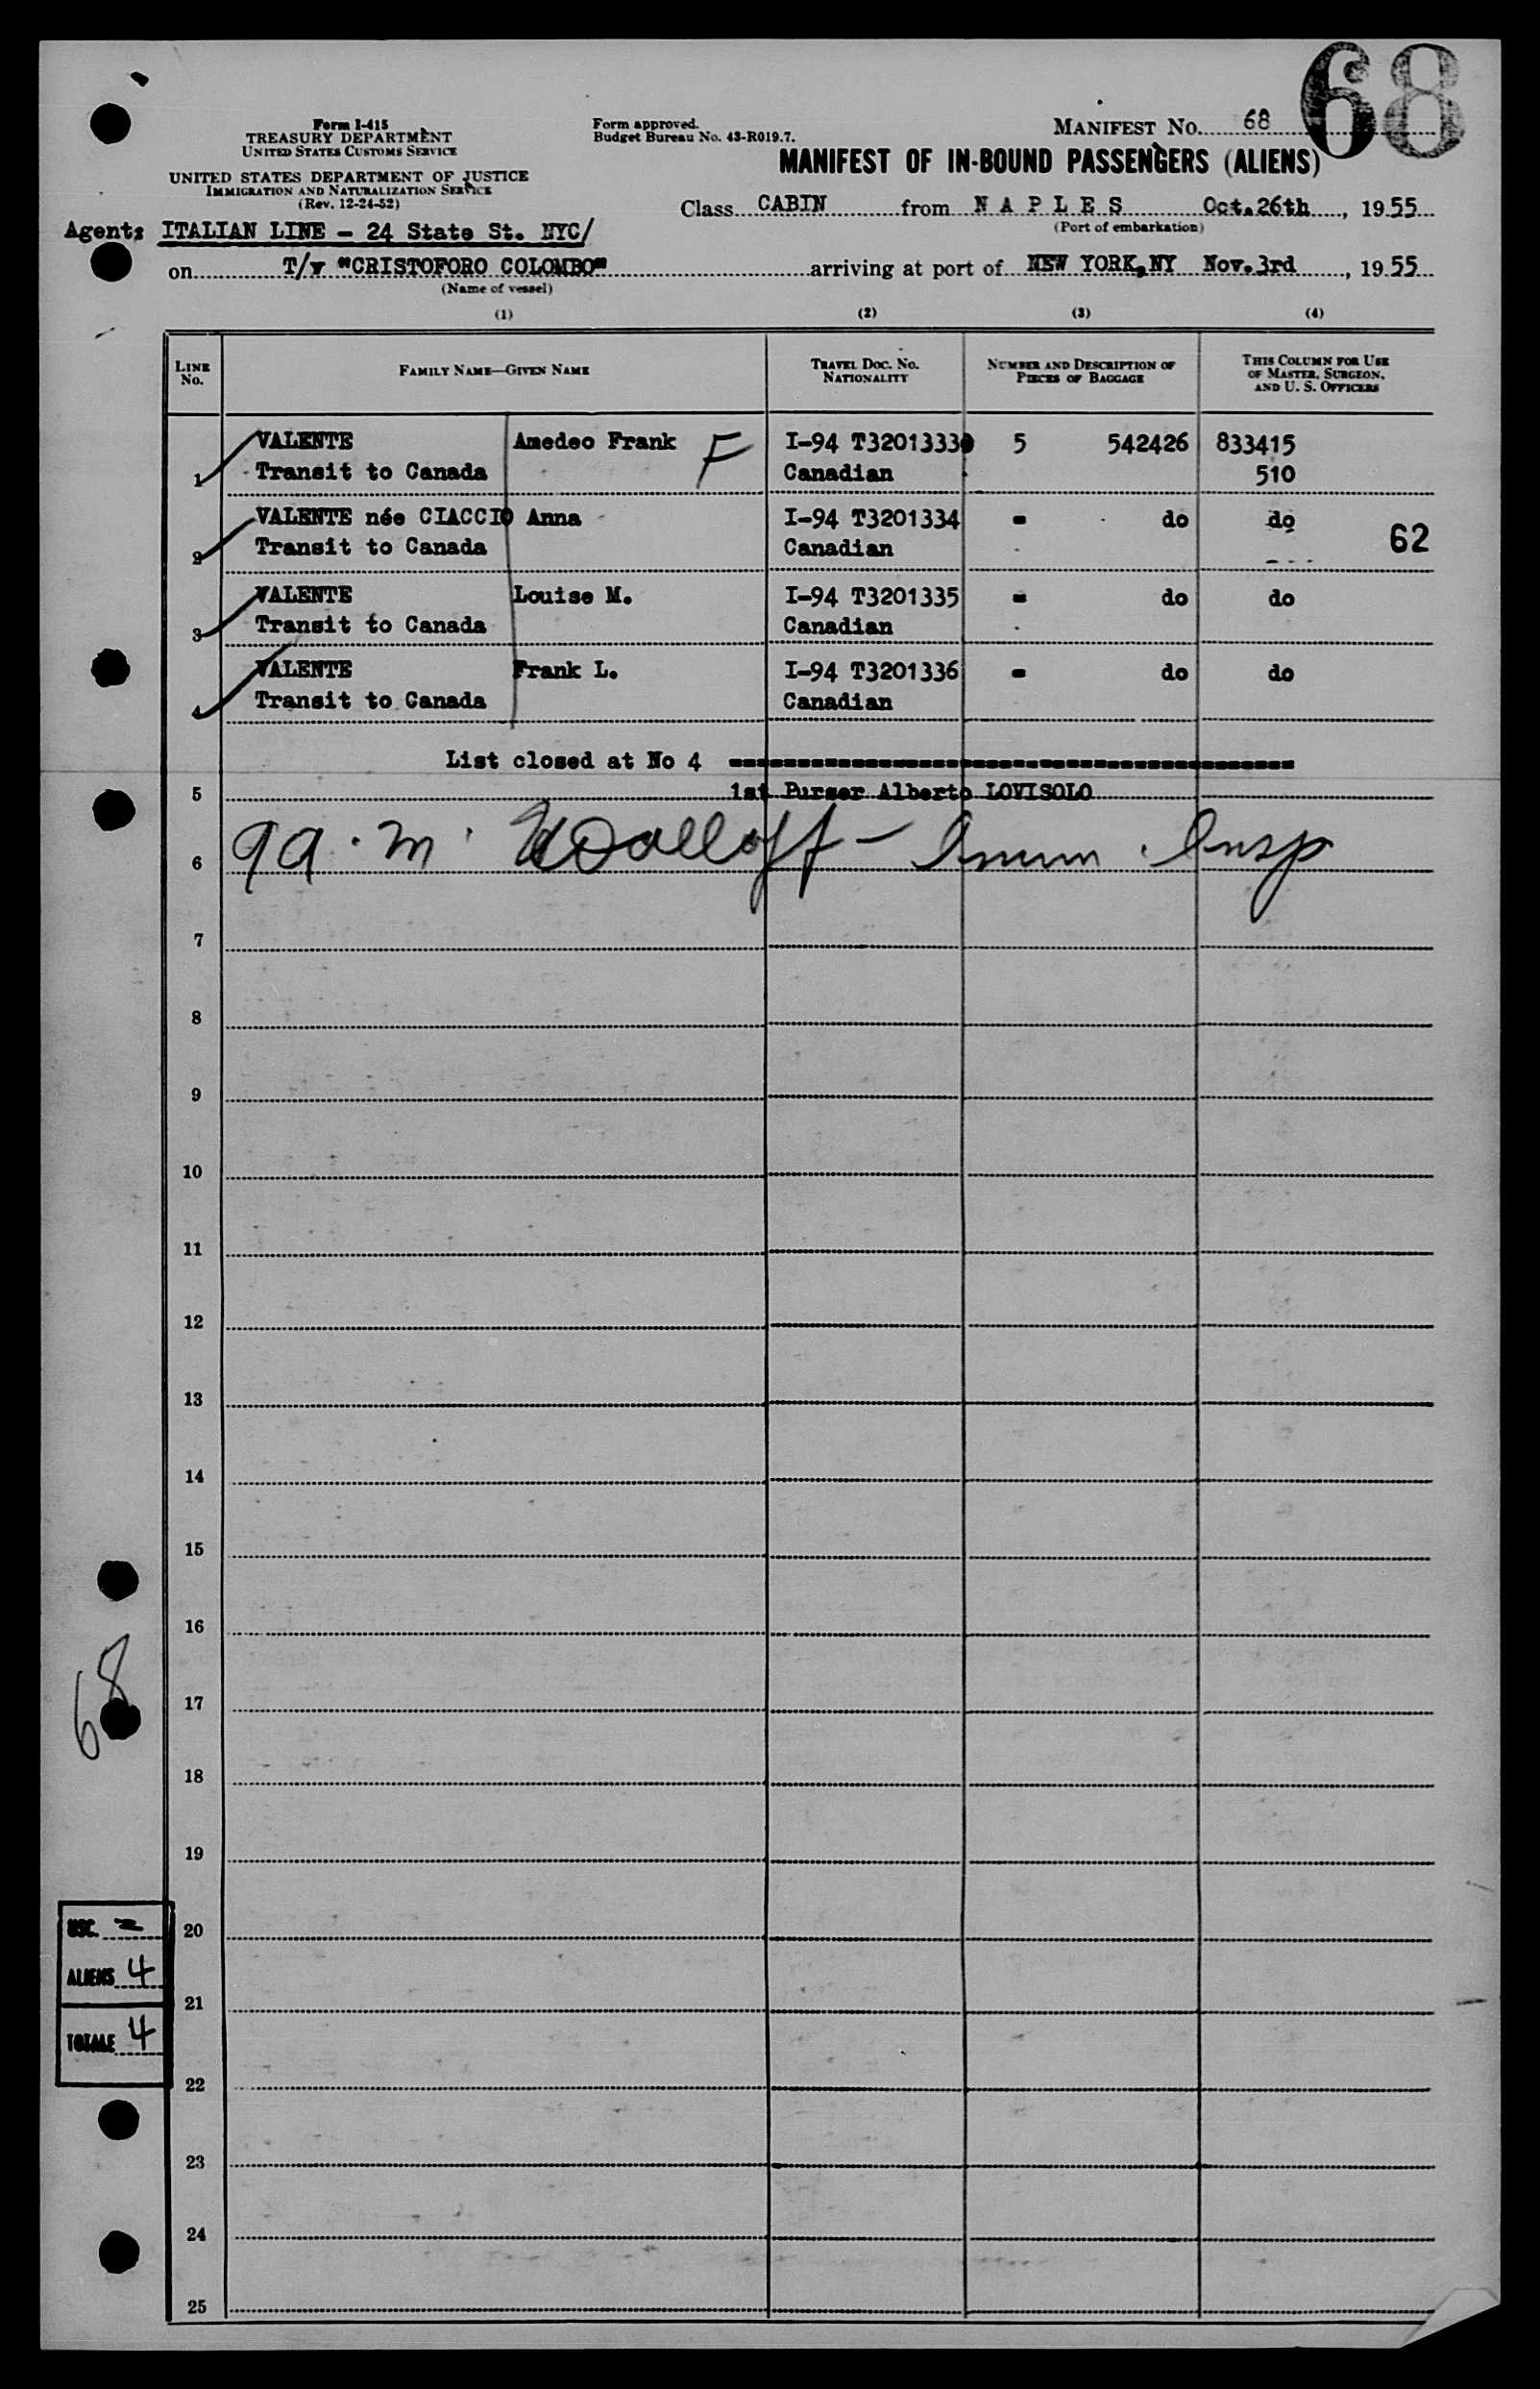 68
Form I-415
TREASURY DEPARTMENT
UNITED STATES CUSTOMS SERVICE
UNITED STATES DEPARTMENT OF JUSTICE
IMMIGRATION AND NATURALIZATION SERVICE
(Rev. 12-24-52)
Form approved.
Budget Bureau No. 43-R019.7.
MANIFEST NO. 68
MANIFEST OF IN-BOUND PASSENGERS (ALIENS)
Class CABIN from N A P L E S Oct.26th, 1955
(Port of embarkation)
Agent: ITALIAN LINE - 24 State St. NYC/
on T/v "CRISTOFORO COLOMBO" arriving at port of NEW YORK,NY Nov.3rd, 1955
(Name of vessel)
(1) (2) (3) (4)
LINE NO. FAMILY NAME—GIVEN NAME TRAVEL DOC. NO. NATIONALITY NUMBER AND DESCRIPTION OF PIECES OF BAGGAGE THIS COLUMN FOR USE OF MASTER, SURGEON, AND U. S. OFFICERS
VALENTE Amedeo Frank F I-94 T3201333 5 542426 833415
1 Transit to Canada Canadian 510
VALENTE née CIACCIO Anna I-94 T3201334 - do do
2 Transit to Canada Canadian 62
VALENTE Louise M. I-94 T3201335 - do do
3 Transit to Canada Canadian
VALENTE Frank L. I-94 T3201336 - do do
4 Transit to Canada Canadian
List closed at No 4 ----------
5 1st Purser Alberto LOVISOLO
6
7
8
9
10
11
12
13
14
15
16
17
18
19
20
21
22
23
24
25
68
USC.
ALIENS 4
TOTALE 4